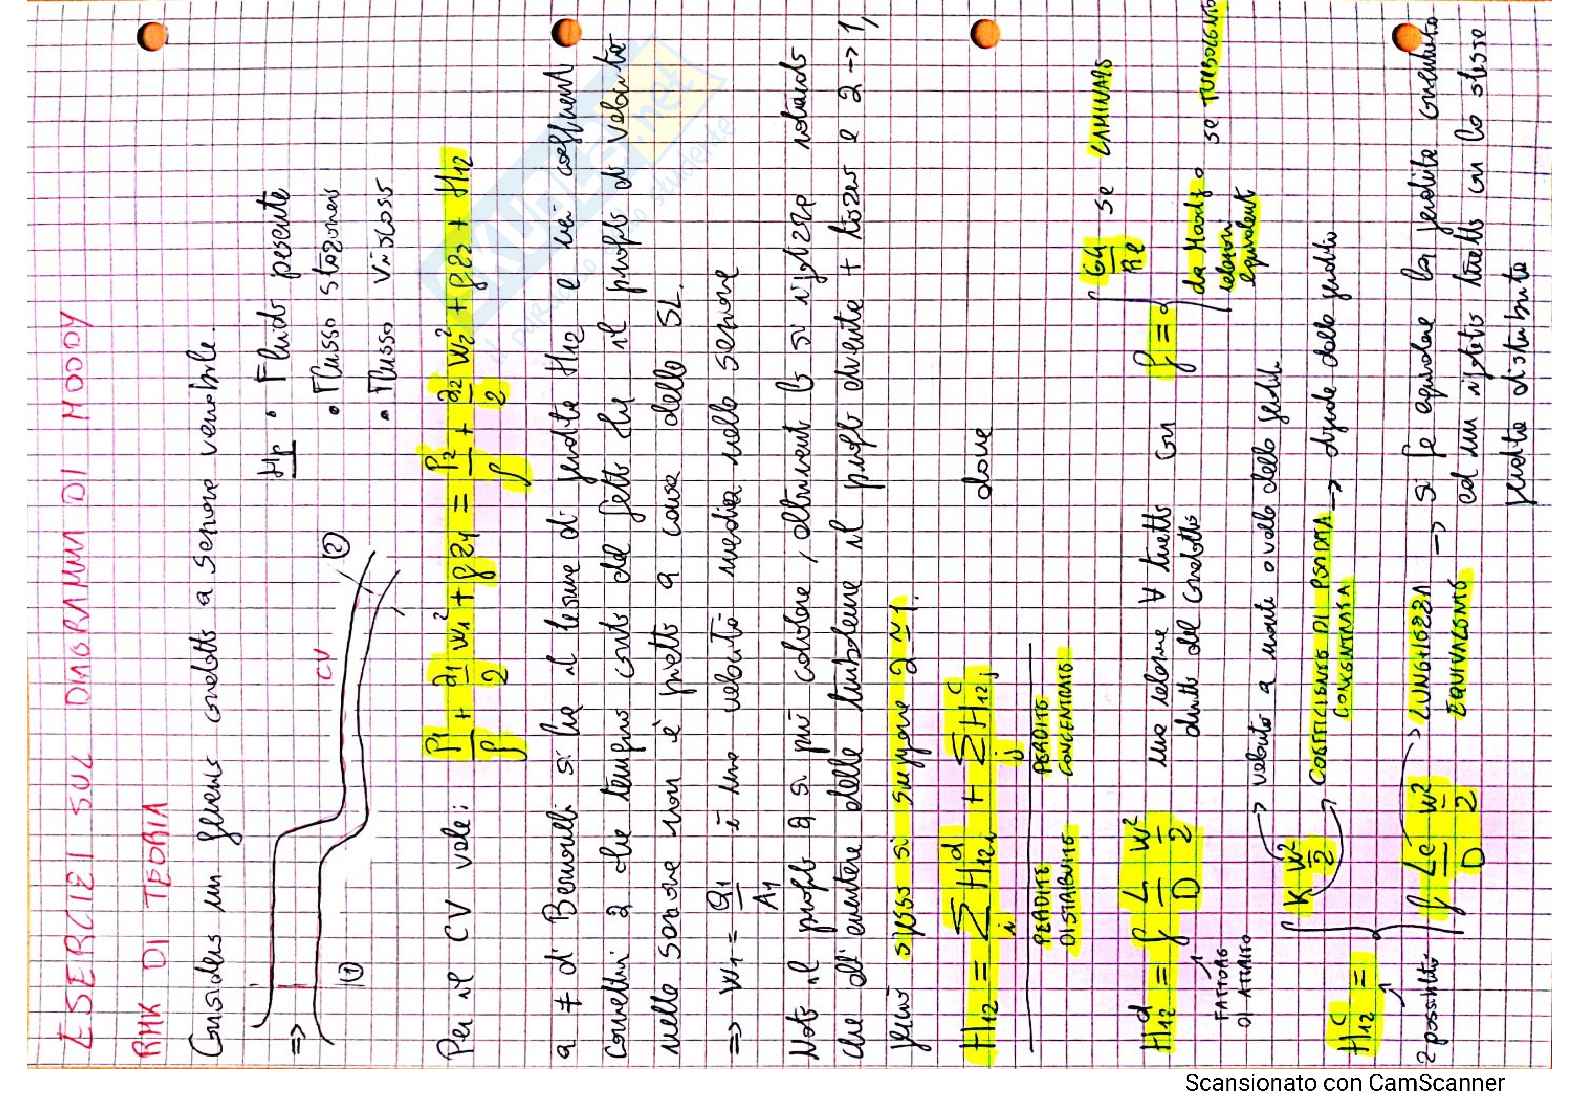 ESERCIZI SUL DIAGRAMMA DI MOODY
RMK DI TEORIA
Considero un generico condotto a sezione variabile.
CV
Hp • Fluido pesante
• Flusso stazionario
• Flusso viscoso
⇒ ① ②
Per il CV vale: P1/ρ + a1/2 w1² + gz1 = P2/ρ + a2/2 w2² + gz2 + H12
a ≠ di Bernoulli si ha il termine di perdite H12 e i coefficienti
correttivi a che tengono conto del fatto che il profilo di velocità
nella sezione non è piatto a causa dello SL.
⇒ w1 = Q1/A1 è una velocità media nella sezione
Noto il profilo a si può calcolare, altrimenti lo si ipotizza notando
che all'aumentare della turbolenza il profilo diventa + e a → 1,
spesso si suppone a ≃ 1.
H12 = Σi H12i^d + Σj H12j^c dove
PERDITE DISTRIBUITE
PERDITE CONCENTRATE
H12^d = f L/D w²/2 una relazione ∀ tratto diritto del condotto con f = { 64/Re se LAMINARE
da Moody o relazioni equivalenti se TURBOLENTO
FATTORE DI ATTRITO
H12^c = { K w²/2 → velocità a monte o valle della perdita
COEFFICIENTE DI PERDITA CONCENTRATA → dipende dalla perdita
2 possibilità
f Le/D w²/2 → LUNGHEZZA EQUIVALENTE → si fa equivalere la perdita concentrata
ad un ipotetico tratto con la stessa
perdita distribuita
SKUOLA.net
Scansionato con CamScanner